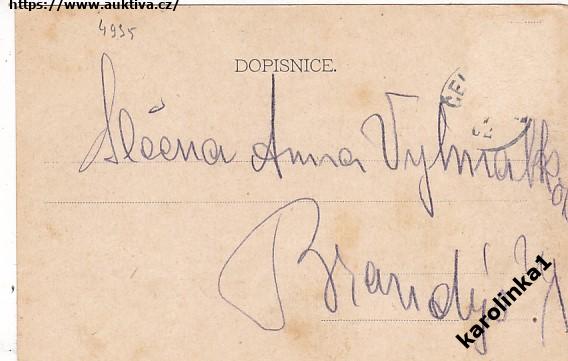 https://www.auktiva.cz/
4935
DOPISNICE.
Slečna Anna
Brandýs
karolinka1